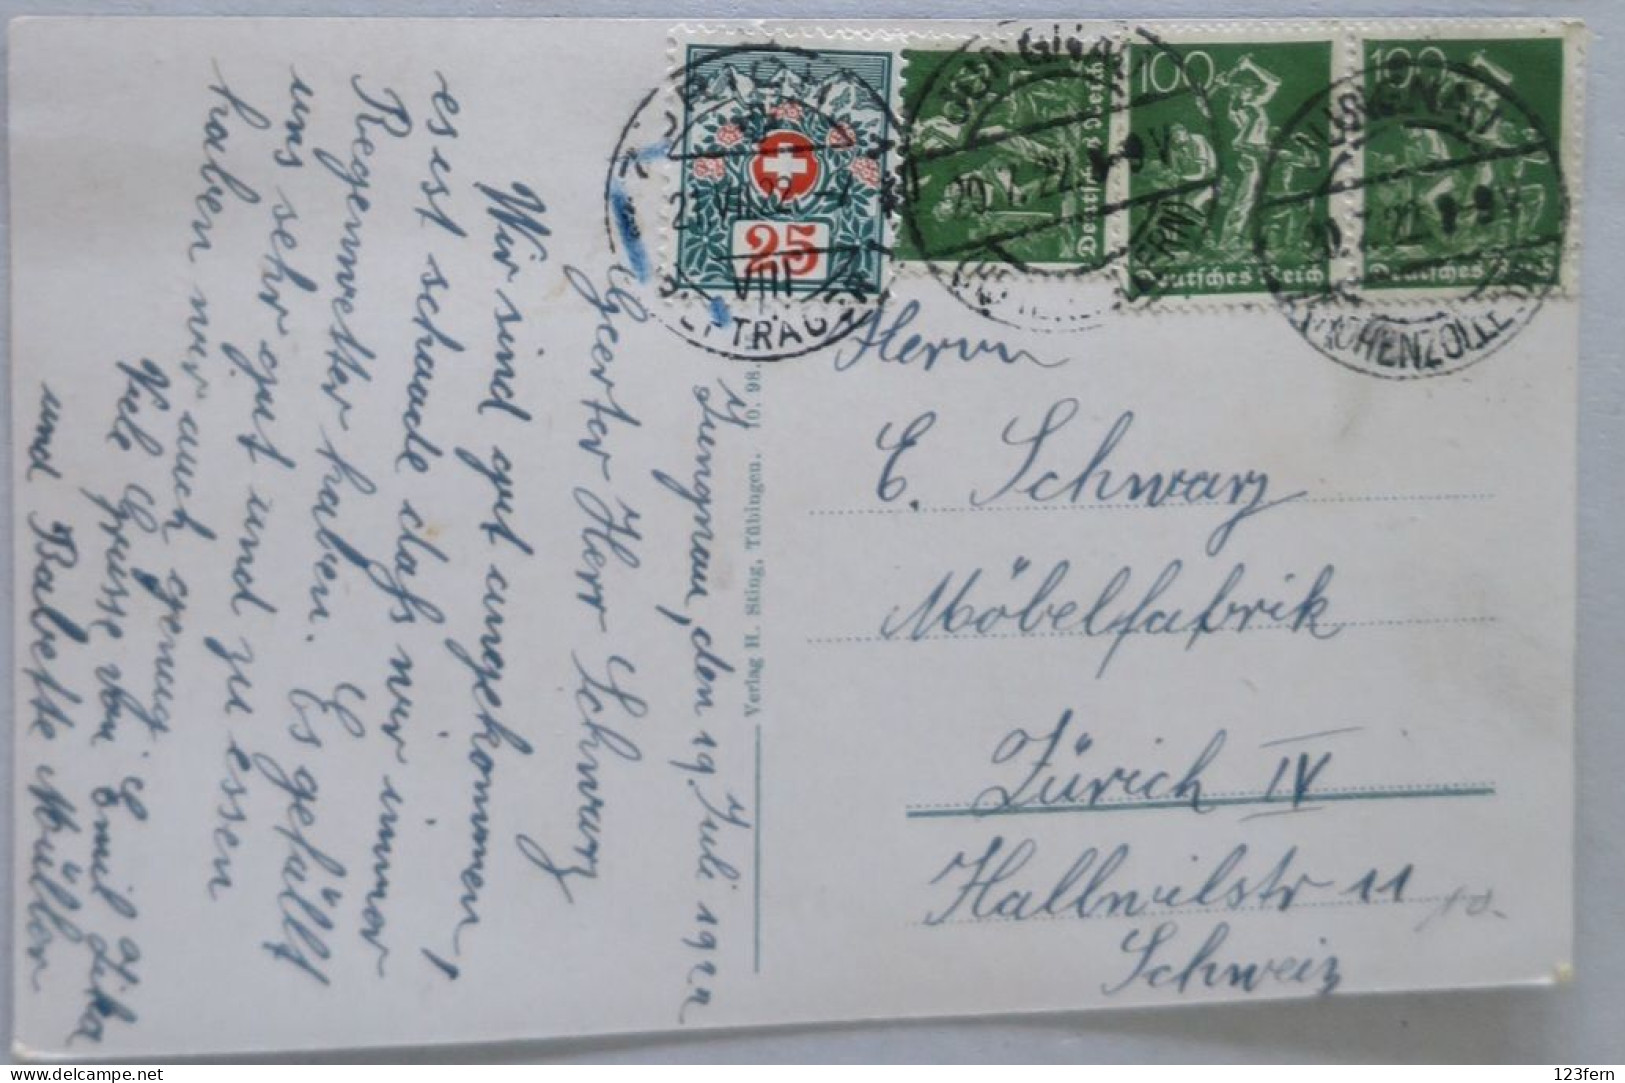 Jungnau, den 19. Juli 1922
Geerter Herr Schwarz
Wir sind gut angekommen,
es ist schaade dass wir immer
Regenwetter haben. Es gefällt
uns sehr gut und zu essen
haben wir auch genug.
Viele Grüsse von Emil
und Babette Müller
Verlag H. Sting, Tübingen. 10. 98.
25
21.VII.22.
VIII
TRAG
JUNGNAU
20.7.22. 8-9 V
Deutsches Reich
100
Deutsches Reich
JUNGNAU
20.7.22. 8-9 V
(HOHENZOLLERN)
100
Deutsches Reich
Herrn
E. Schwarz
Möbelfabrik
Zürich IV
Hallwilstr 11
Schweiz
123fern